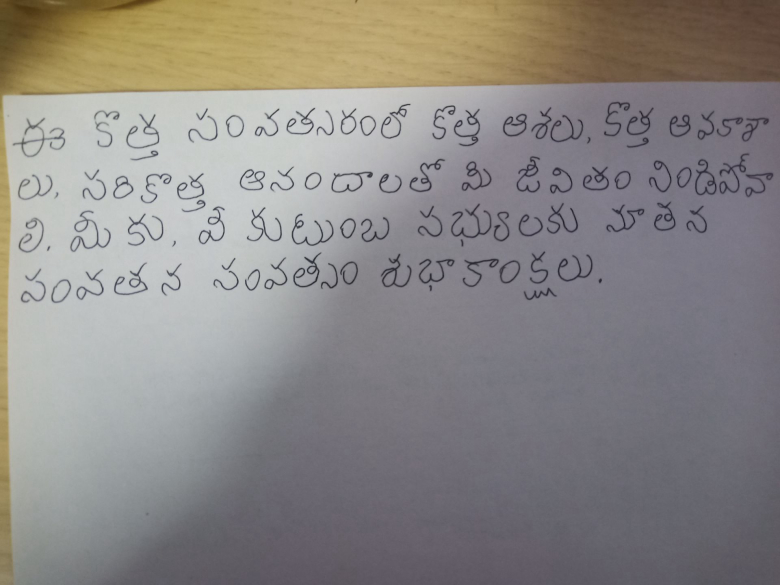 ఈ కొత్త సంవత్సరంలో కొత్త ఆశలు, కొత్త అవకాశా
లు, సరికొత్త ఆనందాలతో మీ జీవితం నిండిపోవా
లి. మీ కు, మీ కుటుంబ సభ్యులకు నూతన
సంవత న సంవత్సం శుభాకాంక్షలు.